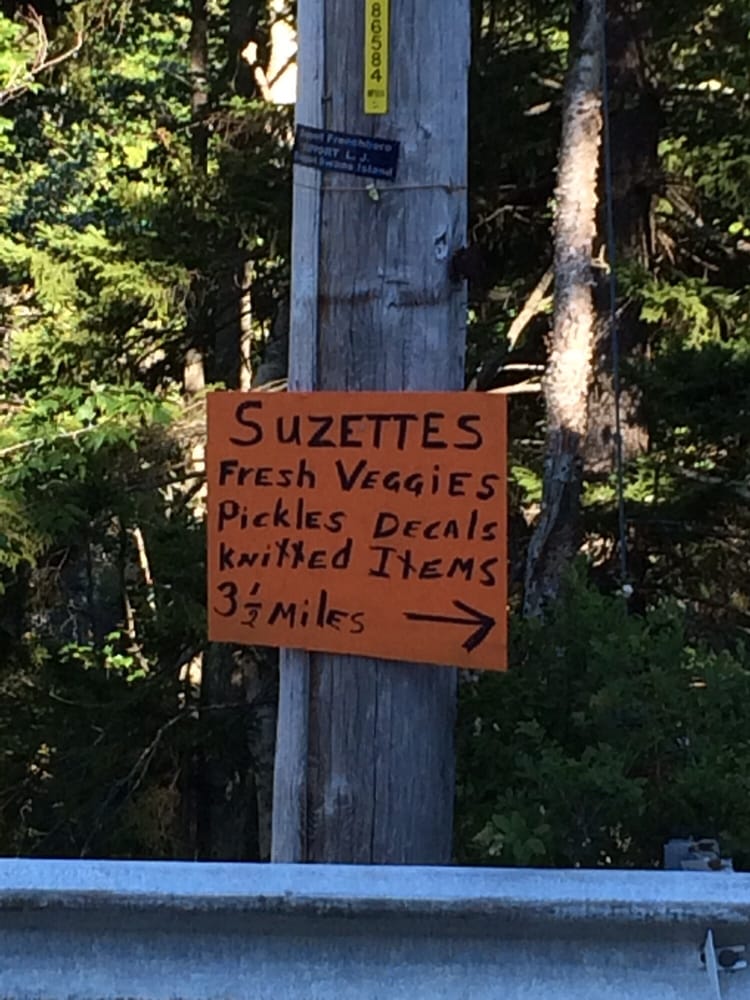 86584
Frenchboro
L. J.
Swans Island
SUZETTES
FRESH VEGGiES
PickLES DECALS
KNiTTED ITEMS
3 1/2 MiLES →